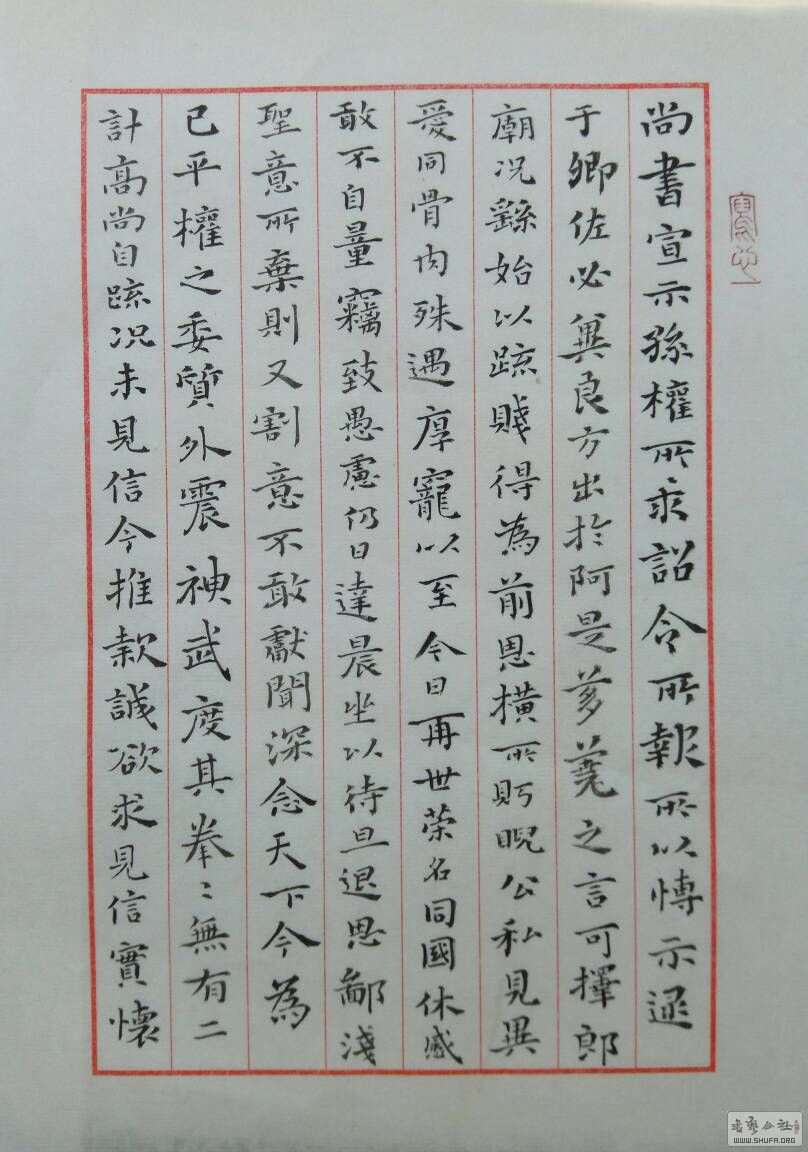 尚書宣示孫權所求詔令所報所以博示逮
于卿佐必冀良方出於阿是芻蕘之言可擇郎
廟況繇始以疏賤得為前恩橫所眄睨公私見異
愛同骨肉殊遇厚寵以至今日再世榮名同國休慼
敢不自量竊致愚慮仍日達晨坐以待旦退思鄙淺
聖意所棄則又割意不敢獻聞深念天下今為
已平權之委質外震神武度其拳〻無有二
計高尚自疏况未見信今推款誠欲求見信實懷
書藝公社
WWW.SHUFA.ORG